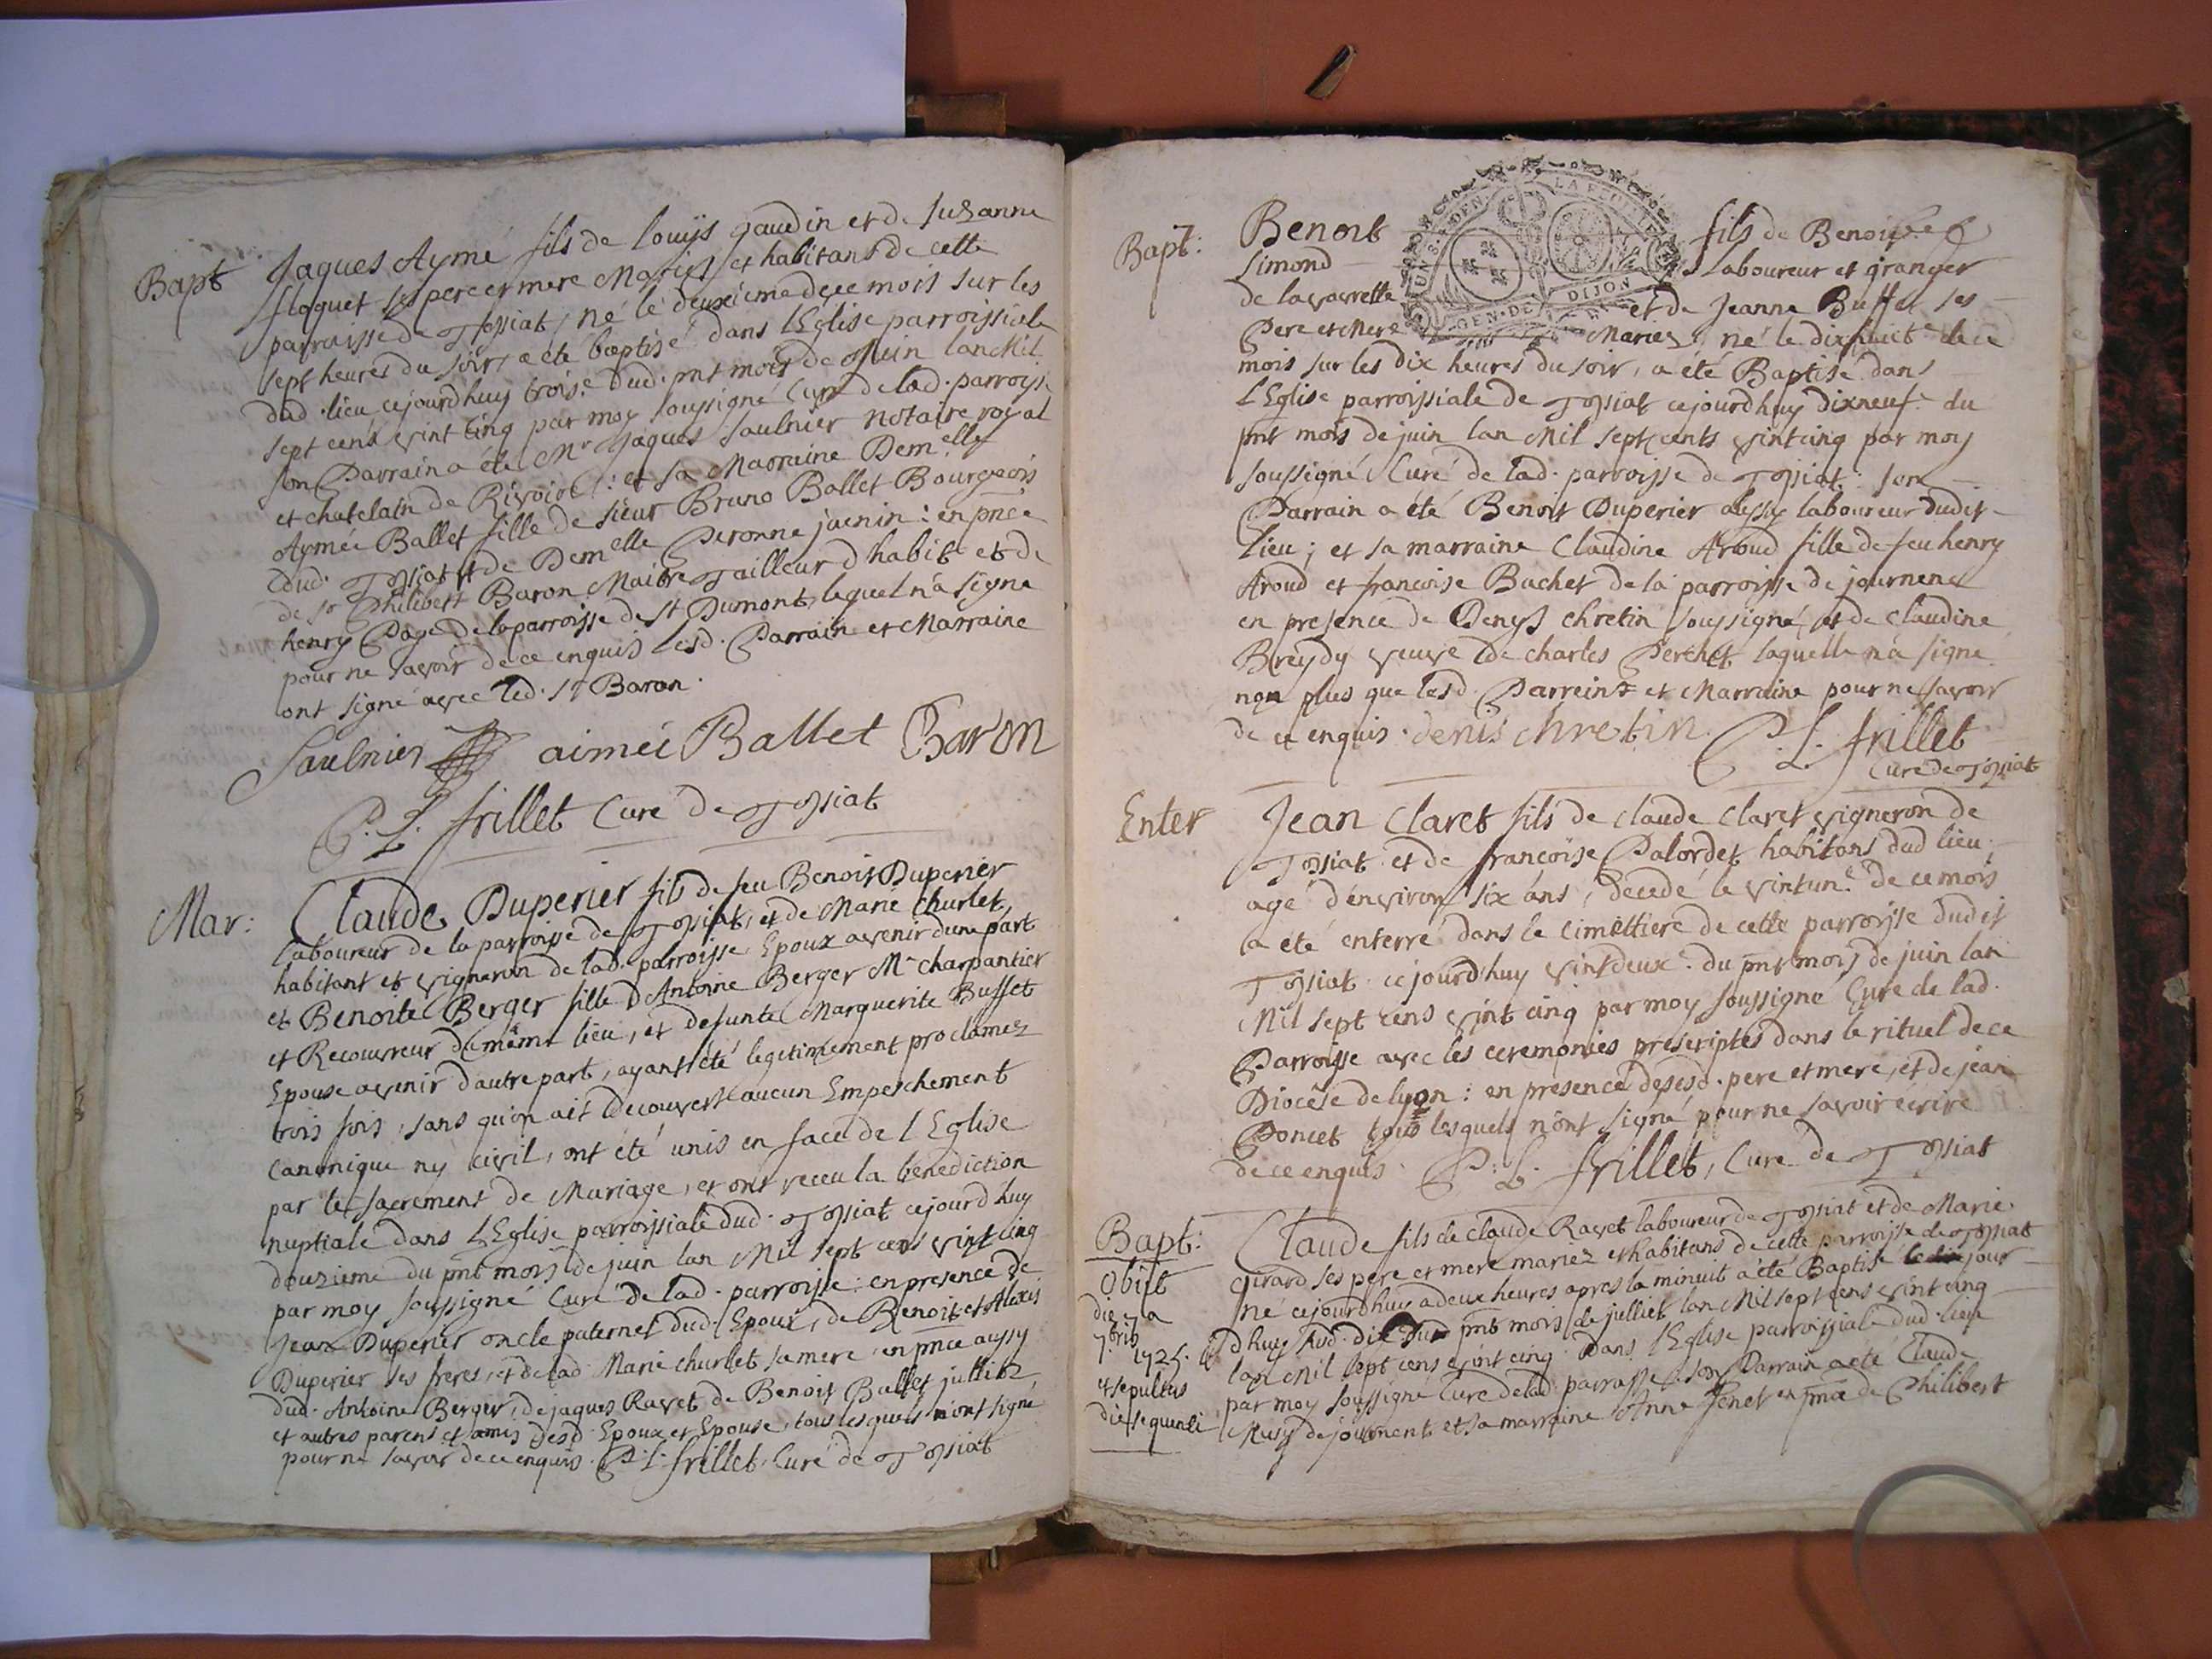 Bapt
Jaques Aymé fils de louÿs gaudin et de Suzanne
floquet ses pere et mere Mariez et habitans de cette
parroisse de Tossiat, né le deuxieme de ce mois sur les
sept heures du soir, a été baptisé dans l'Eglise parroissiale
dud. lieu cejourdhuy trois.e dud. pnt mois de Juin lan Mil
sept cens vint cinq par moy soussigné Curé de lad. parroisse
son Parrain a été Mr Jaques Saulnier Notaire royal
et chatelain de Rivoire: et sa Marraine Dem.elle
Aymée Ballet fille de sieur Bruno Ballet Bourgeois
dud. Tossiat et de Demelle Peronne juenin: en pnce
de sr Philibert Baron Maitre Tailleur d'habit et de
henry Page de la parroisse de st Dumont, lequel n'a signé
pour ne savoir de ce enquis Lesd. Parrain et Marraine
ont signé avec led. sr Baron.
Saulnier aimée Ballet Baron
P. L. frillet Curé de Tossiat
Mar:
Claude Duperier fils de feu Benoit Duperier
laboureur de la parroisse de Tossiat, et de Marie Churlet,
habitant et vigneron de lad. parroisse Epoux avenir d'une part
et Benoite Berger fille d'Antoine Berger Mr charpantier
et Recouvreur du même lieu, et defunte Marguerite Buffet
Epouse avenir d'autre part, ayants été legitimement proclamez
trois fois, sans qu'on ait decouvert aucun Empeschement
canonique ny civil, ont été unis en face de l'Eglise
par le sacrement de Mariage, et ont receu la benediction
nuptiale dans L'Eglise parroissiale dud. Tossiat cejourd'huy
douzieme du pnt mois de juin lan Mil sept cens vint cinq
par moy soussigné Curé de lad. parroisse: en presence de
Jean Duperier oncle paternel dud. Epoux, de Benoit et Alexis
Duperier ses freres, et de lad. Marie churlet sa mere en pnce aussy
dud. Antoine Berger, de jaques Ravet de Benoit Buffet
et autres parens et amis desd. Epoux et Epouse, tous lesquels n'ont signé
pour ne savoir de ce enquis. P. L. frillet, Curé de Tossiat
Bapt:
Benoit fils de Benoit
Simond laboureur et granger
de lavavrette et de Jeanne Buffet ses
Pere et Mere Mariez, né le dixhuit.e de ce
mois sur les dix heures du soir, a été Baptisé dans
L'Eglise parroissiale de Tossiat cejourd'huy dixneuf.e du
pnt mois de juin lan Mil sept cents vint cinq par moy
soussigné Curé de lad. parroisse de Tossiat: son
Parrain a été Benoit Duperier aussy laboureur dudit
Lieu; et sa marraine Claudine Aroud fille de feu henry
Aroud et francoise Bachet de la parroisse de journend
en presence de Denys Chretin soussigné, et de Claudine
Breydy veuve de charles Perchet laquelle n'a signé
non plus que lesd. Parrein et Marraine pour ne savoir
de ce enquis. denis chretin P. L. frillet
Curé de Tossiat
Enter
Jean Claret fils de claude Claret vigneron de
Tossiat et de francoise Palordet habitans dud lieu;
agé d'environ six ans, decedé le vintun.e de ce mois
a été enterré dans le cimettiere de cette parroisse dudit
Tossiat cejourd'huy vintdeux.e du pnt mois de juin lan
Mil sept cens vint cinq par moy soussigné Curé de lad.
Parroisse avec les ceremonies prescriptes dans le rituel de ce
Diocèse de lyon: en presence desesd. pere et mere, et de jean
Poncet tous lesquels n'ont signé pour ne savoir ecrire
de ce enquis. P. L. frillet, Curé de Tossiat
Bapt:
Claude fils de claude Ravet laboureur de Tossiat et de Marie
Girard ses pere et mere mariez et habitans de cette parroisse de Tossiat
né cejourd'huy a deux heures apres la minuit a été Baptisé jour
d'huy dud. pnt mois de julliet lan Mil sept cens vint cinq
lan Mil sept cens vint cinq dans l'Eglise parroissiale dud. lieu
par moy soussigné Curé de lad. parroisse son Parrain a été Claude
Musy de journent et sa marraine Anne Jenet en pnce de Philibert
Obiit
die 7a
7bris
1725.
et sepultus
die sequenti